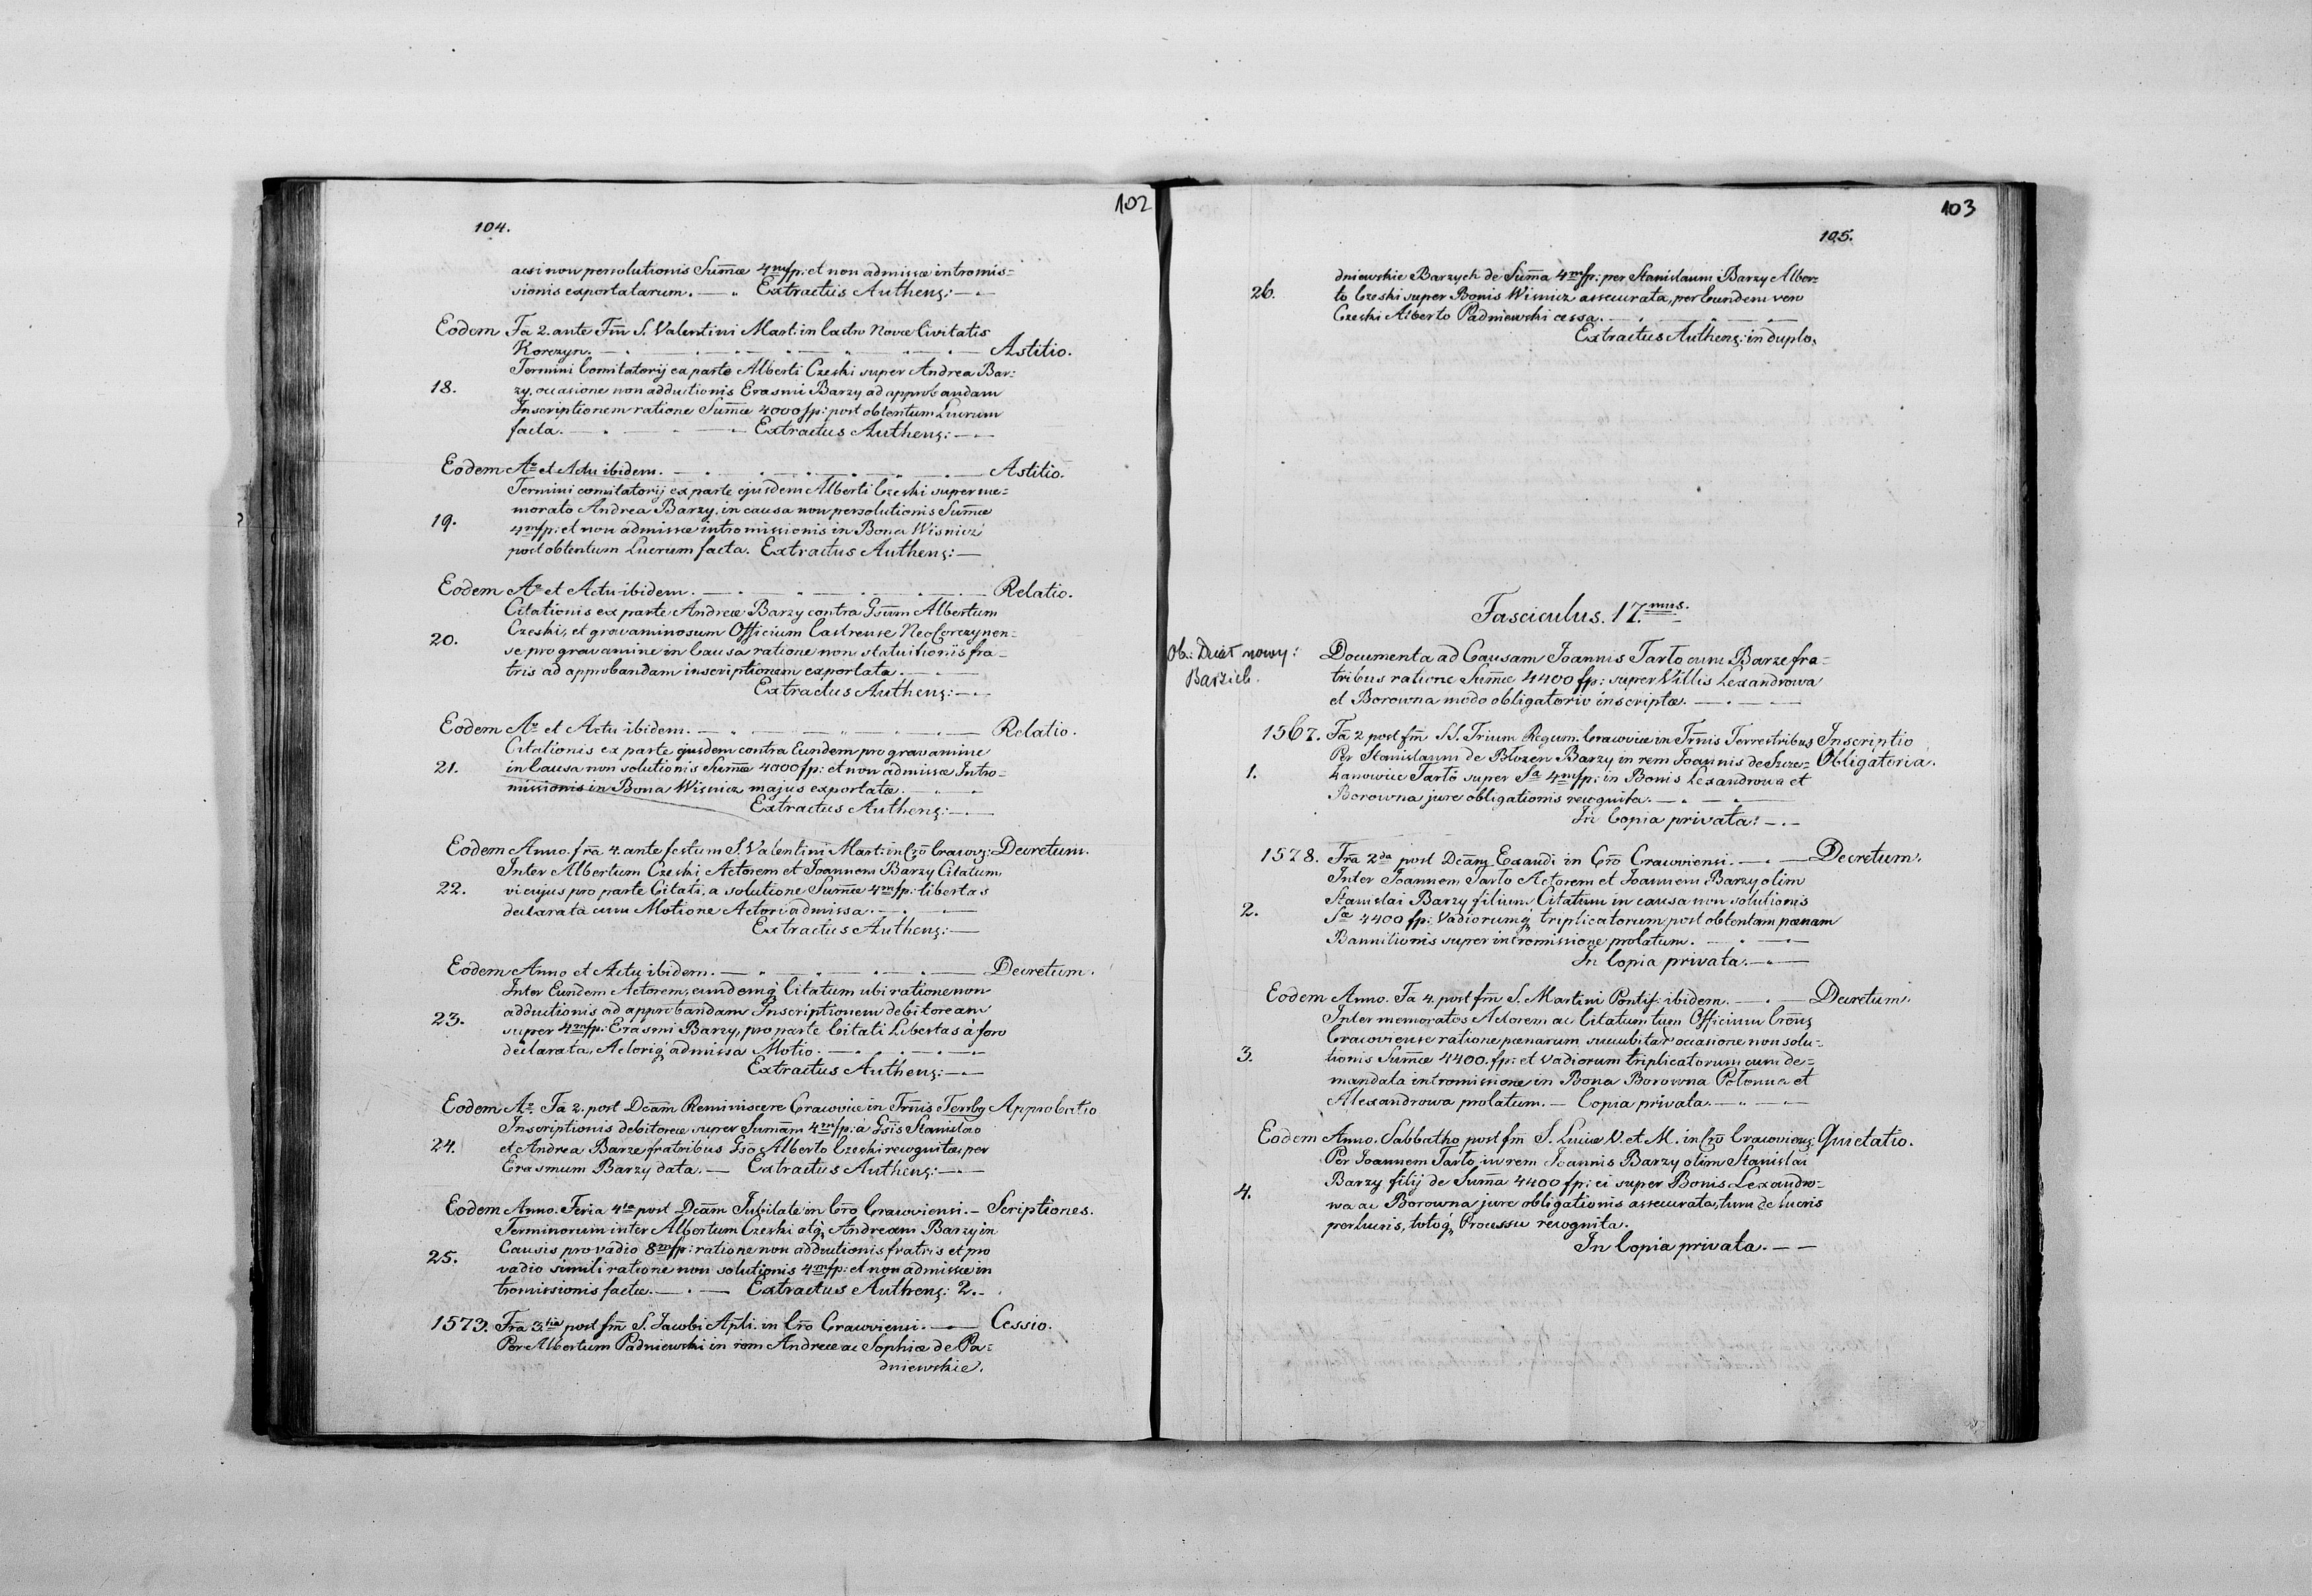 102
104.
ac si non persolutionis Sum̄æ 4m fp: et non admissæ intromis=
sionis exportatarum. — „ Extractus Authenz: — . —
Eodem Fa 2. ante Fm̄ S. Valentini Mart: in Castro Novæ Civitatis
Korczyn. — Astitio.
Termini Comitatorij ex parte Alberti Czeski super Andrea Bar:
18. zy, occasione non adductionis Erasmi Barzy ad approbandam
Inscriptionem ratione Sum̄æ 4000 fp: post obtentum Lucrum
facta. — Extractus Authenz: — . —
Eodem Ao et Actu ibidem. — Astitio.
Termini comitatorij ex parte ejusdem Alberti Czeski super me=
morato Andrea Barzy, in causa non persolutionis Sum̄æ
19. 4m fp: et non admissæ intromissionis in Bona Wisnicz
post obtentum Lucrum facta. Extractus Authenz: —
Eodem Ao et Actu ibidem. — Relatio.
Citationis ex parte Andreæ Barzy contra Gsum Albertum
20. Czeski, et gravaminosum Officium Castrense NeoCorczynen=
se pro gravamine in Causa ratione non statuitionis fra=
tris ad approbandam inscriptionem exportata. —
Extractus Authenz: — . —
Eodem Ao et Actu ibidem. — Relatio.
Citationis ex parte ejusdem contra Eundem pro gravamine
21. in Causa non solutionis Sum̄æ 4000 fp: et non admissæ Intro=
missionis in Bona Wisnicz majus exportatæ. —
Extractus Authenz: — . —
Eodem Anno. fra 4. ante festum S. Valentini Mart: in Cro Cracov: Decretum.
Inter Albertum Czeski Actorem et Joannem Barzy Citatum,
22. vi cujus pro parte Citati, a solutione Sum̄æ 4m fp: libertas
declarata cum Motione Actori admissa. —
Extractus Authenz: —
Eodem Anno et Actu ibidem. — Decretum.
Inter Eundem Actorem, eundemq Citatum ubi ratione non
23. adductionis ad approbandam Inscriptionem debitoream
super 4m fp: Erasmi Barzy, pro parte Citati Libertas à foro
declarata, Actoriq admissa Motio. —
Extractus Authenz: — . —
Eodem Ao. Fa 2. post Dcam Reminiscere Cracoviæ in Trnis Terrbq Approbatio
Inscriptionis debitoreæ super Sumam 4m fp: a Gsis Stanislao
24. et Andrea Barze fratribus Gso Alberto Czeski recognitæ, per
Erasmum Barzy data. — Extractus Authenz: — . —
Eodem Anno. Feria 4ta post Dcam Jubilate in Cro Cracoviensi. — Scriptiones.
Terminorum inter Albertum Czeski atq Andream Barzy in
25. Causis pro vadio 8m fp: ratione non adductionis fratris et pro
vadio simili ratione non solutionis 4m fp: et non admissæ in
tromissionis factæ. — . — Extractus Authenz: 2. —
1573. Fra 3tia post fm S. Jacobi Apli. in Cro Cracoviensi. — Cessio.
Per Albertum Padniewski in rem Andreæ ac Sophiæ de Pa=
dniewskie.
103
105.
dniewskie Barzych de Sum̄a 4m fp: per Stanislaum Barzy Alber=
26. to Czeski super Bonis Wisnicz assecurata, per Eundem vero
Czeski Alberto Padniewski cessa. —
Extractus Authenz: in duplo.
Fasciculus. 17.mus.
Ob: Dział nowy:
Barzich.
Documenta ad Causam Joannis Tarło cum Barze fra=
tribus ratione Sum̄æ 4400 fp: super Villis Lexandrowa
et Borowna modo obligatorio inscriptæ. — . —
1567. Fa 2 post fm SS. Trium Regum. Cracoviæ in Trnis Terrestribus Inscriptio
Per Stanislaum de Błozew Barzy in rem Joannis de Szcze= Obligatoria.
1. kanowice Tarło super Sa 4m fp: in Bonis Lexandrowa et
Borowna jure obligationis recognita. —
In Copia privata: — . —
1578. Fra 2da post Dcam Exaudi in Cro Cracoviensi. — . — Decretum.
Inter Joannem Tarło Actorem et Joannem Barzy olim
Stanislai Barzy filium Citatum in causa non solutionis
2. Sæ 4400 fp: Vadiorumq triplicatorum post obtentam pœnam
Bannitionis super intromissione prolatum. —
In Copia privata. —
Eodem Anno. Fa 4. post fm S. Martini Pontif: ibidem. — . — Decretum.
Inter memoratos Actorem ac Citatum tum Officium Crens
Cracoviense ratione pœnarum succubitar occasione non solu=
3. tionis Sum̄æ 4400. fp: et vadiorum triplicatorum cum de=
mandata intromissione in Bona Borowna Połomia et
Alexandrowa prolatum. — Copia privata. —
Eodem Anno. Sabbatho post fm S. Luciæ V. et M. in Cro Cracoviens: Quietatio.
Per Joannem Tarło, in rem Joannis Barzy olim Stanislai
Barzy filij de Sum̄a 4400 fp: ei super Bonis Lexandro=
4. wa ac Borowna jure obligationis assecurata, tum de lucris
perlucris, totoq Processu recognita.
In Copia privata. — —